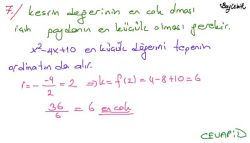 Beylebik
7/ kesrin değerinin en çok olması
için paydanın en küçük olması gerekir.
x²-4x+10 en küçük değerini tepenin
ordinatın da alır.
r = - -4/2 = 2 ⇒ k = f(2) = 4-8+10 = 6
36/6 = 6 en çok
CEVAP:D